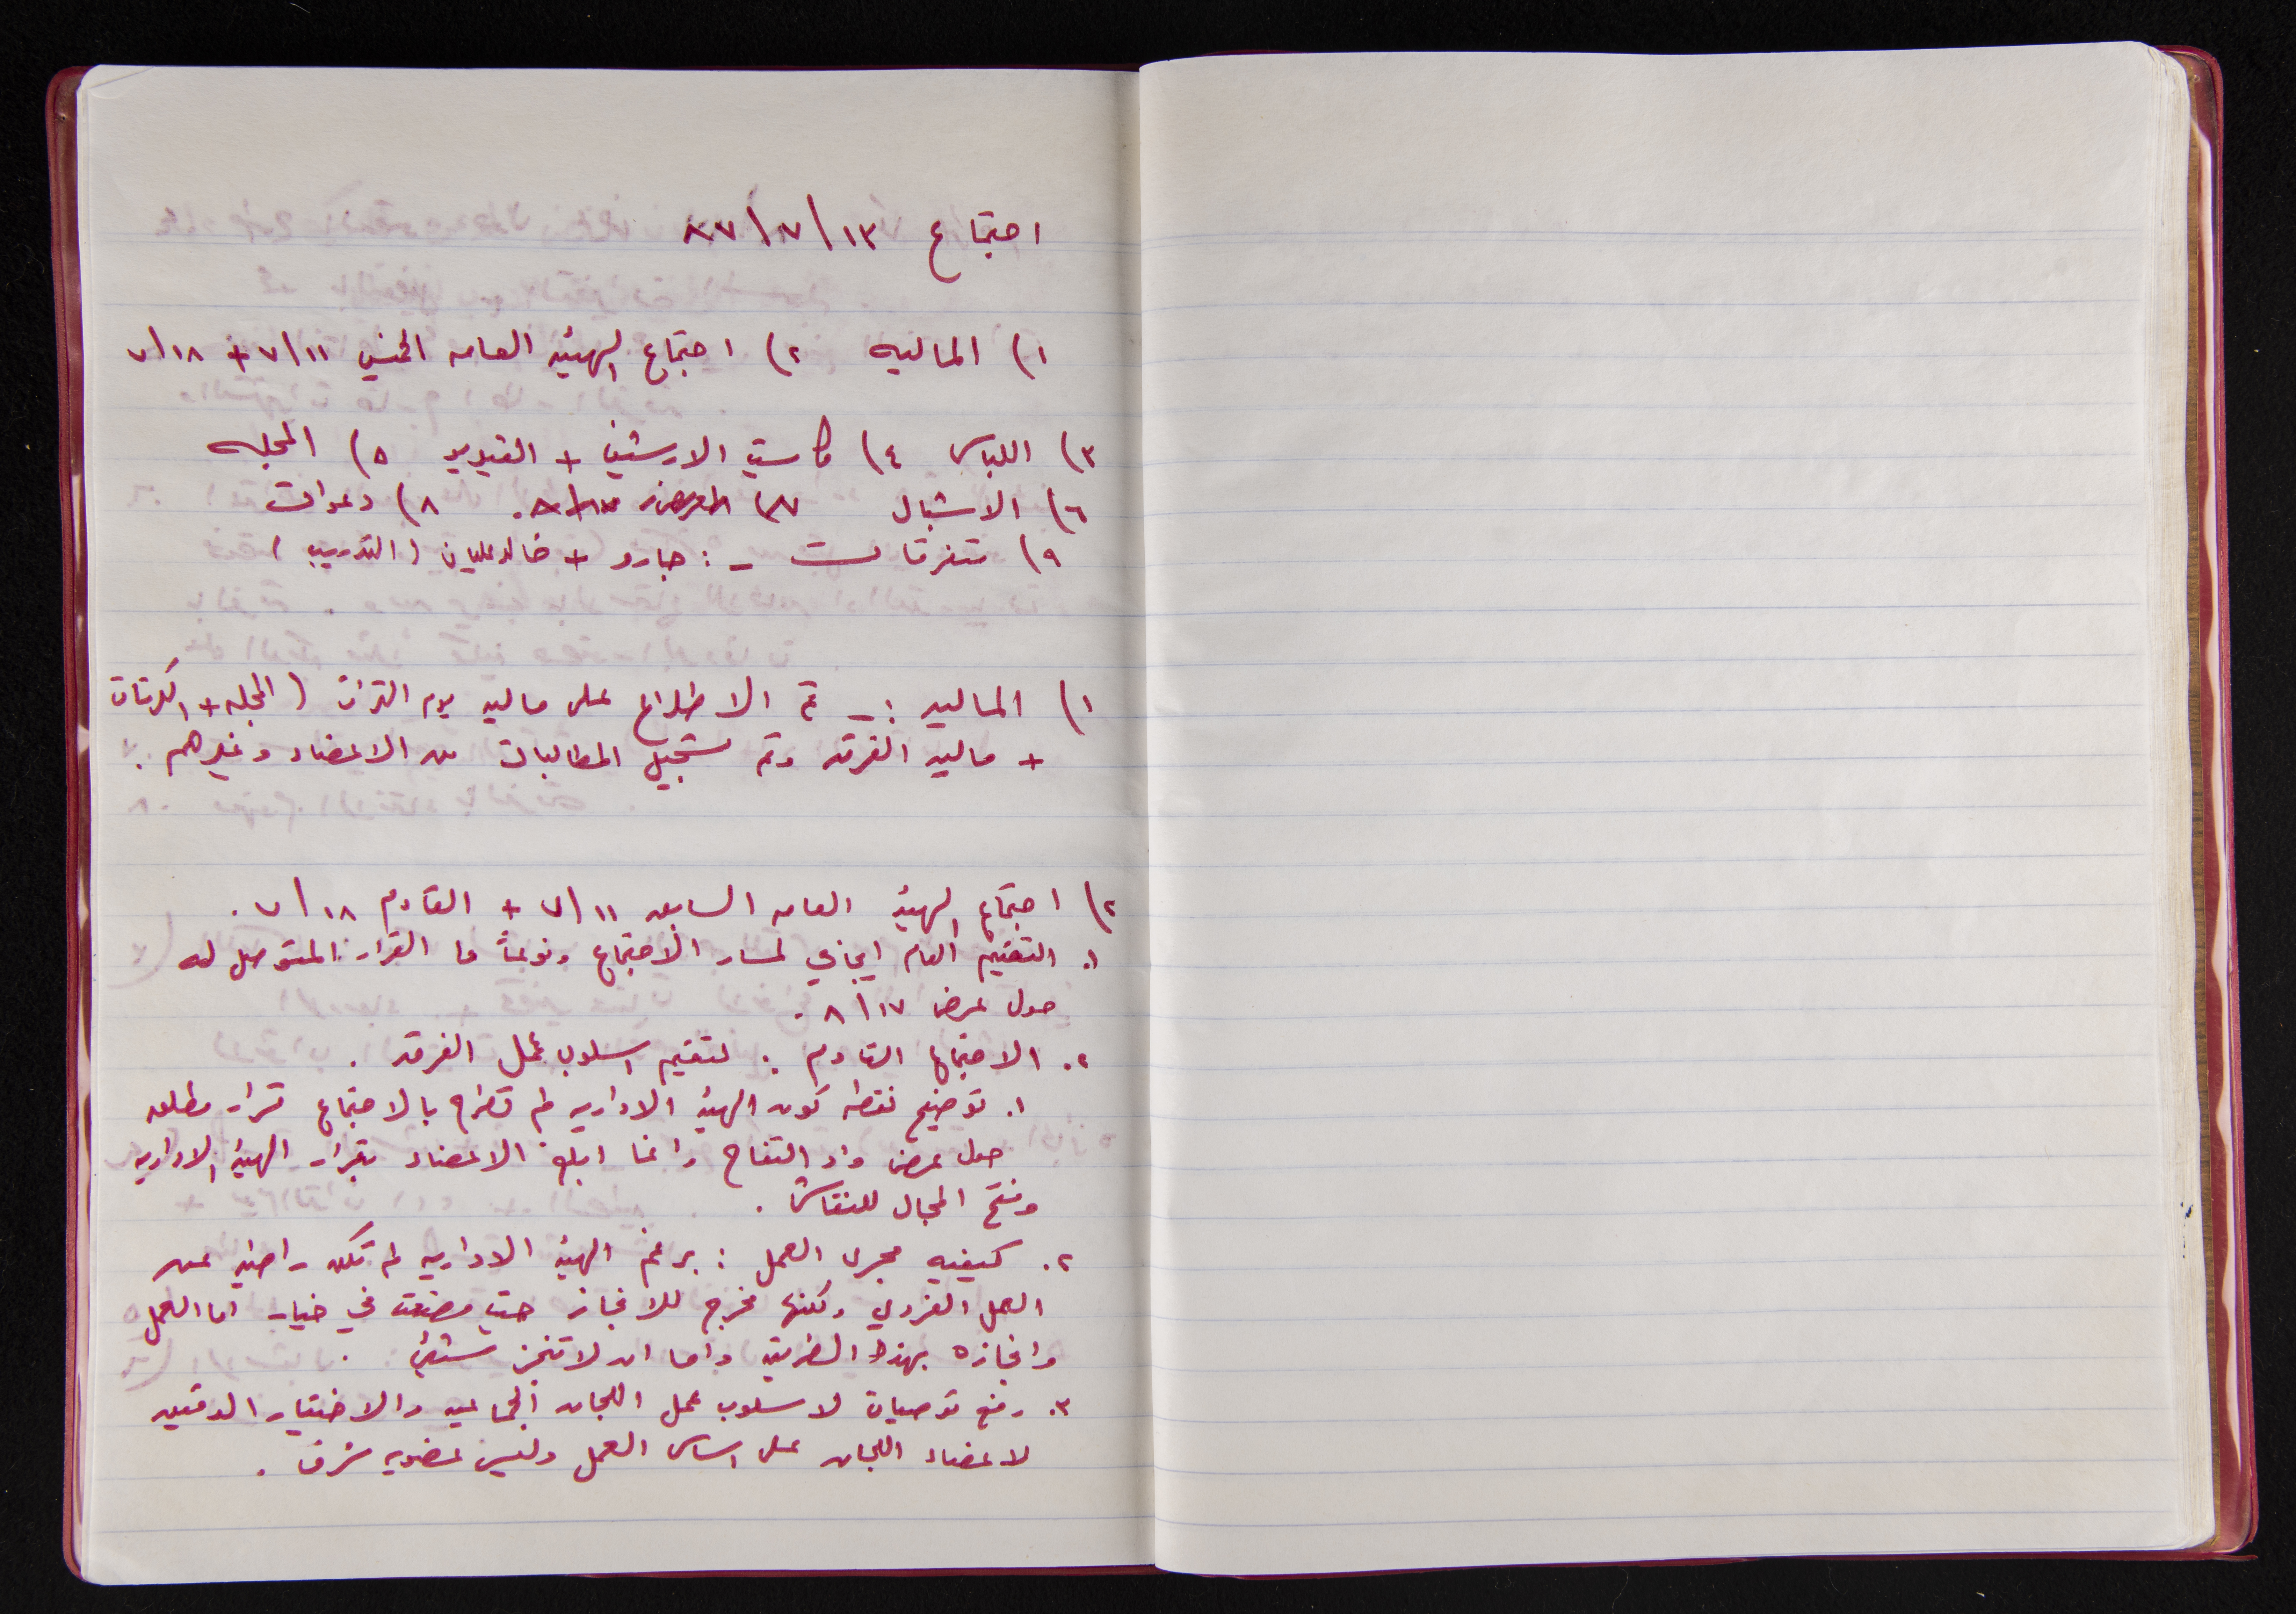 اجتماع ١٣/٧/٨٧
١) الماليه ٢) اجتماع الهيئه العامه الخميس ٧/١١ + ٧/١٨
٣) اللباس ٤) كاسيت الارشيف + الفيديو ٥) المجله
٦) الاشبال ٧) ٨) دعوات
٩) متفرقات - : جارو + خالد عليان (التدريب)
١) الماليه :- تم الاطلاع على ماليه يوم التراث (المجله + الكرتات
+ ماليه الفرقه وتم تسجيل المطالبات من الاعضاء وغيرهم .
٢) اجتماع الهيئه العامه السابق ٧/١١ + القادم ٧/١٨ .
١. التقييم العام ايجابي لمسار الاجتماع ونوعاً ما القرار المتوصل له
حول عرض ٨/١٧ .
٢. الاجتماع القادم . لتقييم اسلوب عمل الفرقه .
١. توضيح نقطه كون الهيئه الاداريه لم تطرح بالاجتماع قرار مطلق
حول عرض واد التفاح وانما ابلغ الاعضاء بقرار الهيئه الاداريه
وفتح المجال للنقاش .
٢. كيفيه مجرى العمل : برغم الهيئه الاداريه لم تكن راضيه عن
العمل الفردي ولكنها مخرج للانجاز حيث وضعت في خيار اما العمل
وانجازه بهذه الطريقه واما ان لا تنجز شيئ .
٣. رفع توصيات لاسلوب عمل اللجان الجماعيه والاختيار الدقيق
لاعضاء اللجان على اساس العمل وليس عضويه شرف .